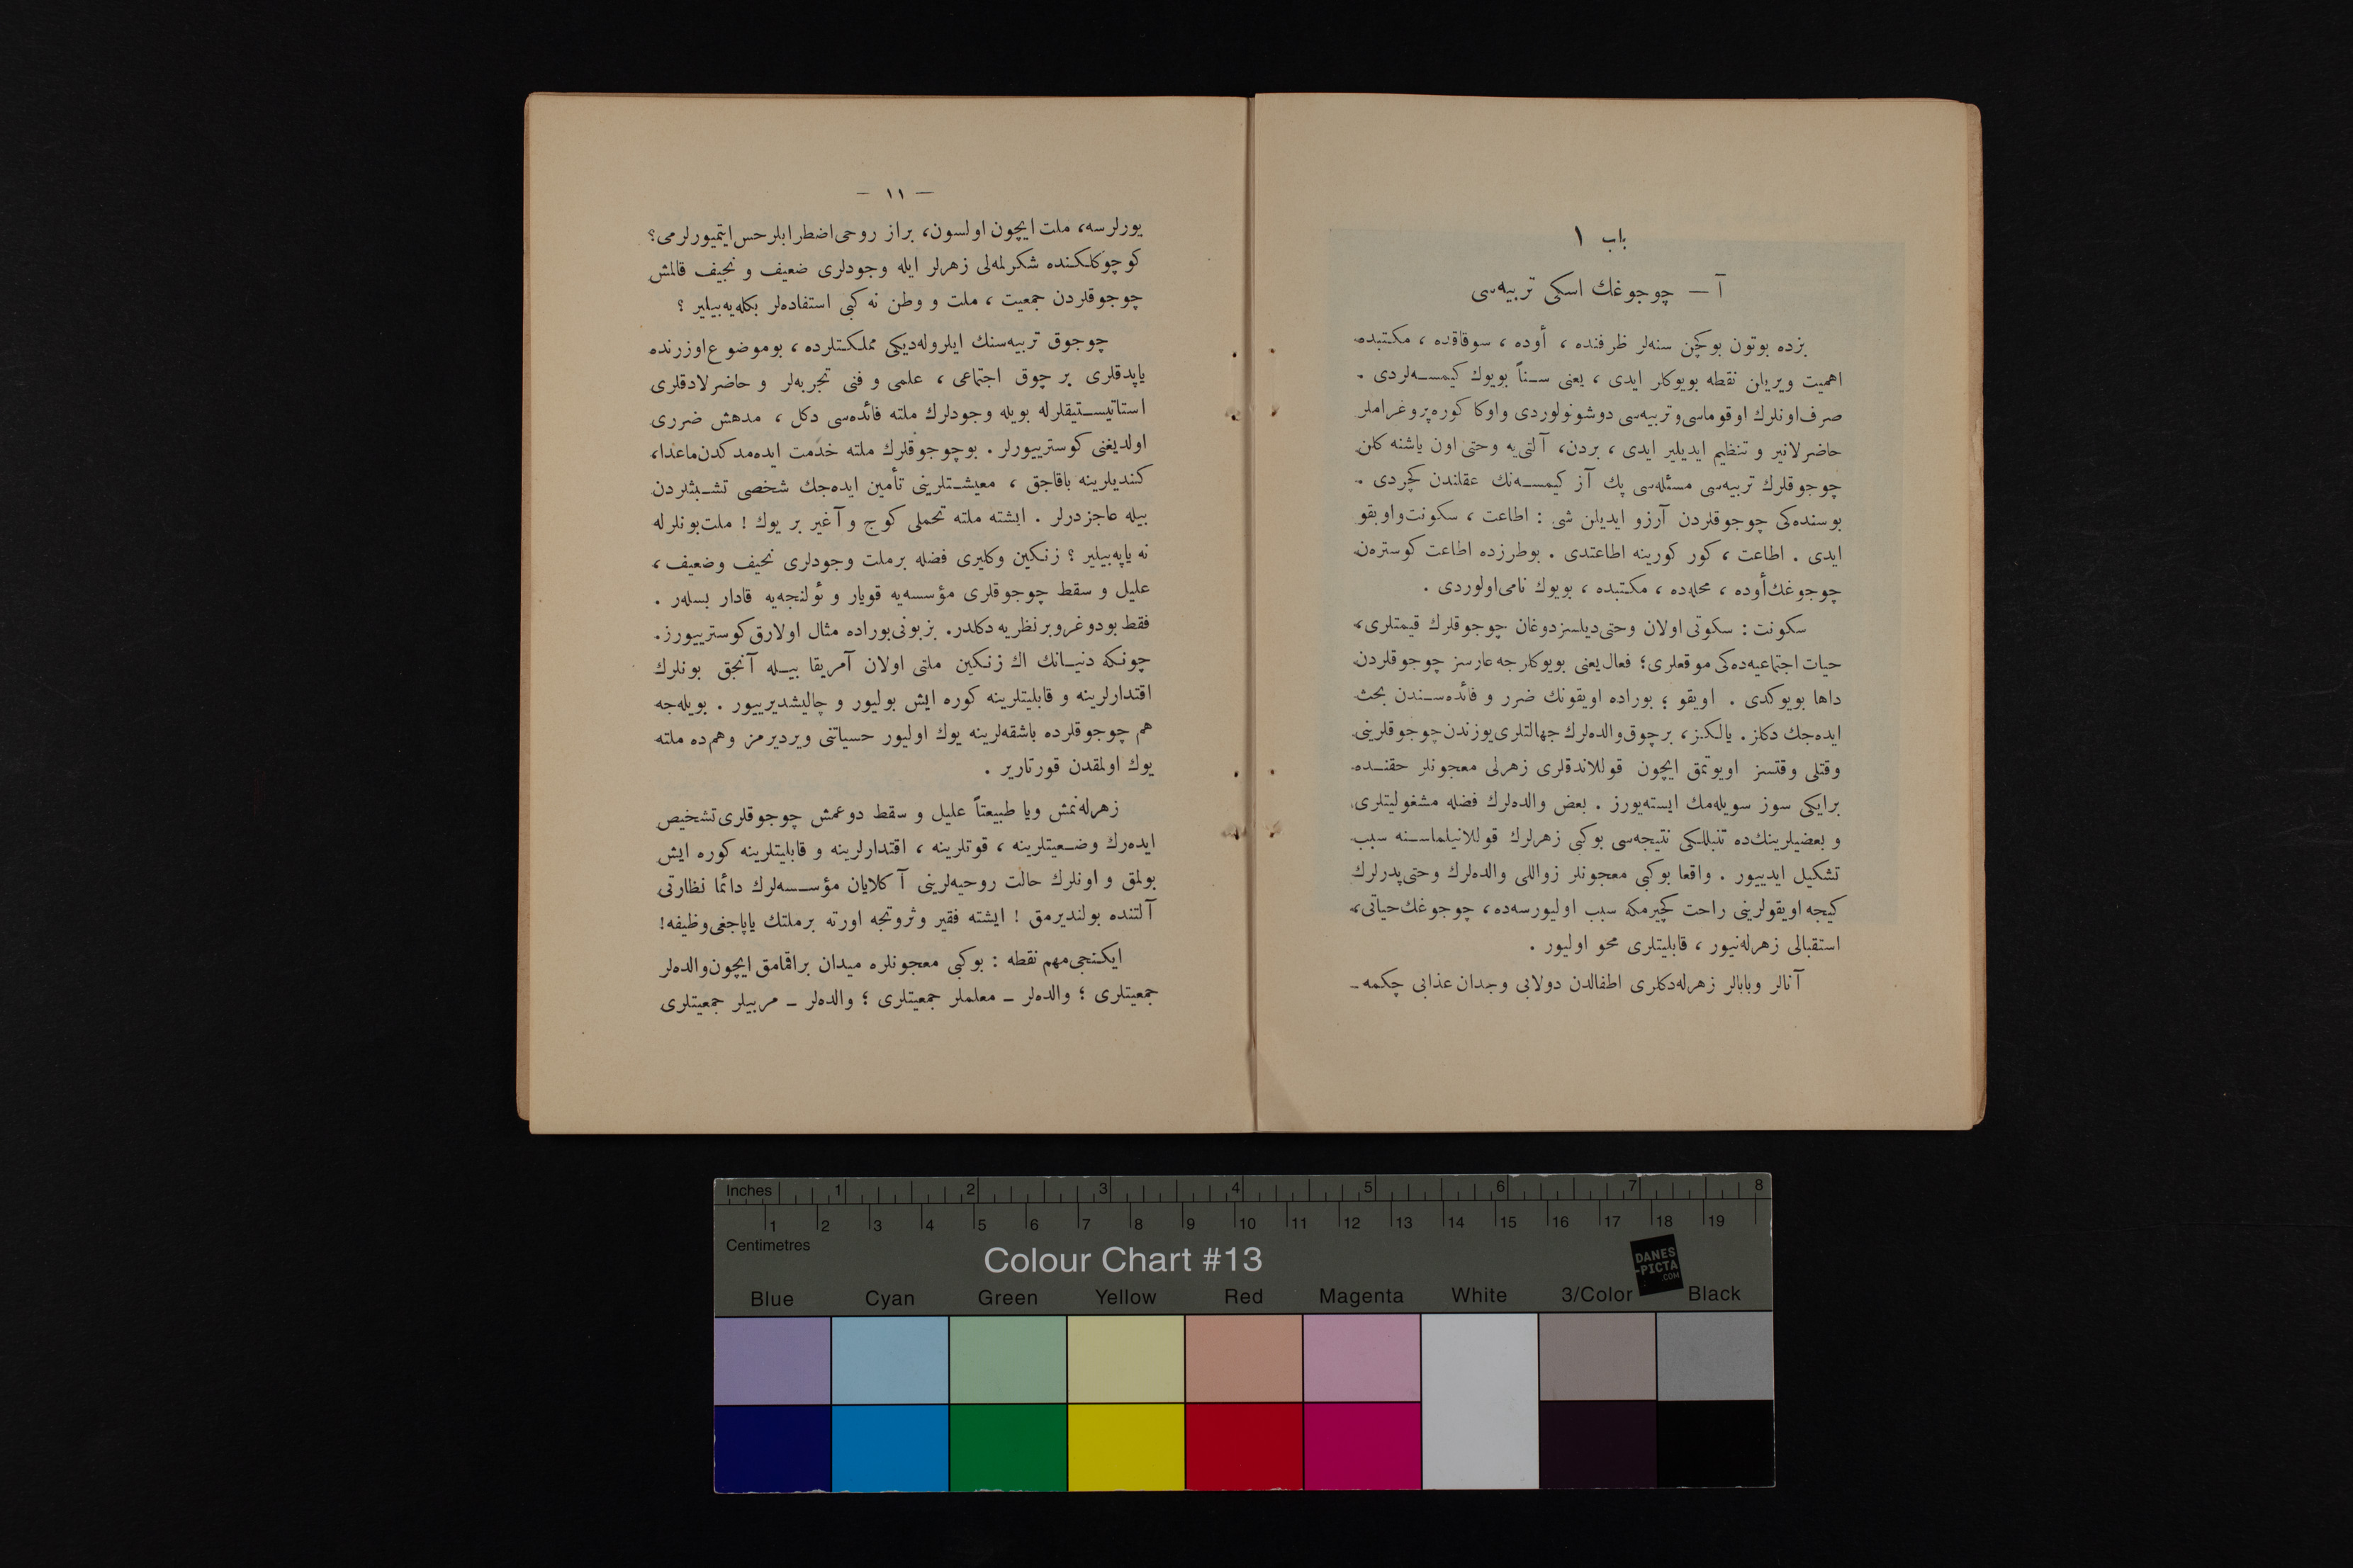 باب ١
آ — چوجوغك اسكی تربیه‌سی
بزده بوتون بو كچن سنه‌لر ظرفنده ، أوده ، سوقاقده ، مكتبده
اهمیت ویریلن نقطه بویوكلر ایدی ، یعنی سناً بویوك كیمسه‌لردی .
صرف اونلرك اوقوماسی و تربیه‌سی دوشونولوردی واوكا كوره پروغراملر
حاضرلانیر و تنظیم ایدیلیر ایدی ، بردن، آلتی‌یه وحتی اون یاشنه كلن
چوجوقلرك تربیه‌سی مسئله‌سی پك آز كیمسه‌نك عقلندن كچردی .
بو سنده‌كی چوجوقلردن آرزو ایدیلن شی : اطاعت ، سكونت واویقو
ایدی . اطاعت ، كور كورینه اطاعتدی . بوطرزده اطاعت كوستره‌ن
چوجوغك أوده ، محله‌ده ، مكتبده ، بویوك نامی اولوردی .
سكونت : سكوتی اولان وحتی دیلسز دوغان چوجوقلرك قیمتلری،
حیات اجتماعیه‌ده‌كی موقعلری؛ فعال یعنی بویوكلرجه عارسز چوجوقلردن
داها بویوكدی . اویقو ؛ بوراده اویقونك ضرر و فائده‌سندن بحث
ایده‌جك دكلز . یالكز، برچوق والده‌لرك جهالتلری یوزندن چوجوقلرینی
وقتلی وقتسز اویوتمق ایچون قوللاندقلری زهرلی معجونلر حقنده
برایكی سوز سویله‌مك ایسته‌یورز . بعض والده‌لرك فضله مشغولیتلری،
و بعضیلرینك‌ده تنبللكی نتیجه‌سی بوكبی زهرلرك قوللانیلماسنه سبب
تشكیل ایدییور . واقعا بوكبی معجونلر زواللی والده‌لرك وحتی پدرلرك
كیجه اویقولرینی راحت كچیرمكه سبب اولیورسه‌ده ، چوجوغك حیاتی،
استقبالی زهرله‌نیور ، قابلیتلری محو اولیور .
آنالر وبابالر زهرله‌دكلری اطفالدن دولایی وجدان عذابی چكمه‌ـ
— ١١ —
یورلرسه، ملت ایچون اولسون، براز روحی اضطرابلر حس ایتمیورلرمی؟
كوچوكلكنده شكرلمه‌لی زهرلر ایله وجودلری ضعیف و نحیف قالمش
چوجوقلردن جمعیت ، ملت و وطن نه كبی استفاده‌لر بكله‌یه‌بیلیر ؟
چوجوق تربیه‌سنك ایلروله‌دیكی مملكتلرده ، بوموضوع اوزرنده
یاپدقلری بر چوق اجتماعی ، علمی و فنی تجربه‌لر و حاضرلادقلری
استاتیستیقلرله بویله وجودلرك ملته فائده‌سی دكل ، مدهش ضرری
اولدیغنی كوسترییورلر . بوچوجوقلرك ملته خدمت ایده‌مدكدن ماعدا،
كندیلرینه باقاجق ، معیشتلرینی تأمین ایده‌جك شخصی تشبثلردن
بیله عاجزدرلر . ایشته ملته تحملی كوج و آغیر بر یوك ! ملت بونلرله
نه یاپه‌بیلیر ؟ زنكین وكلیری فضله برملت وجودلری نحیف وضعیف ،
علیل و سقط چوجوقلری مؤسسه‌یه قویار و ئولنجه‌یه قادار بسلەر .
فقط بودوغروبر نظریه دكلدر. بزبونی بوراده مثال اولارق كوسترییورز.
چونكه دنیانك اك زنكین ملتی اولان آمریقا بیله آنجق بونلرك
اقتدارلرینه و قابلیتلرینه كوره ایش بولیور و چالیشدیرییور . بویله‌جه
هم چوجوقلرده باشقه‌لرینه یوك اولیور حسیاتنی ویردیرمز وهم‌ده ملته
یوك اولمقدن قورتاریر .
زهرله‌نمش ویا طبیعتاً علیل و سقط دوغمش چوجوقلری تشخیص
ایده‌رك وضعیتلرینه ، قوتلرینه ، اقتدارلرینه و قابلیتلرینه كوره ایش
بولمق و اونلرك حالت روحیه‌لرینی آكلایان مؤسسه‌لرك دائما نظارتی
آلتنده بولندیرمق ! ایشته فقیر وثروتجه اورته برملتك یاپاجغی وظیفه!
ایكنجی مهم نقطه : بوكبی معجونلره میدان براقمامق ایچون والده‌لر
جمعیتلری ؛ والده‌لر ـ معلملر جمعیتلری ؛ والده‌لر ـ مربیلر جمعیتلری
Inches 1 2 3 4 5 6 7 8
1 2 3 4 5 6 7 8 9 10 11 12 13 14 15 16 17 18 19
Centimetres
Colour Chart #13
DANES
-PICTA
.COM
Blue Cyan Green Yellow Red Magenta White 3/Color Black